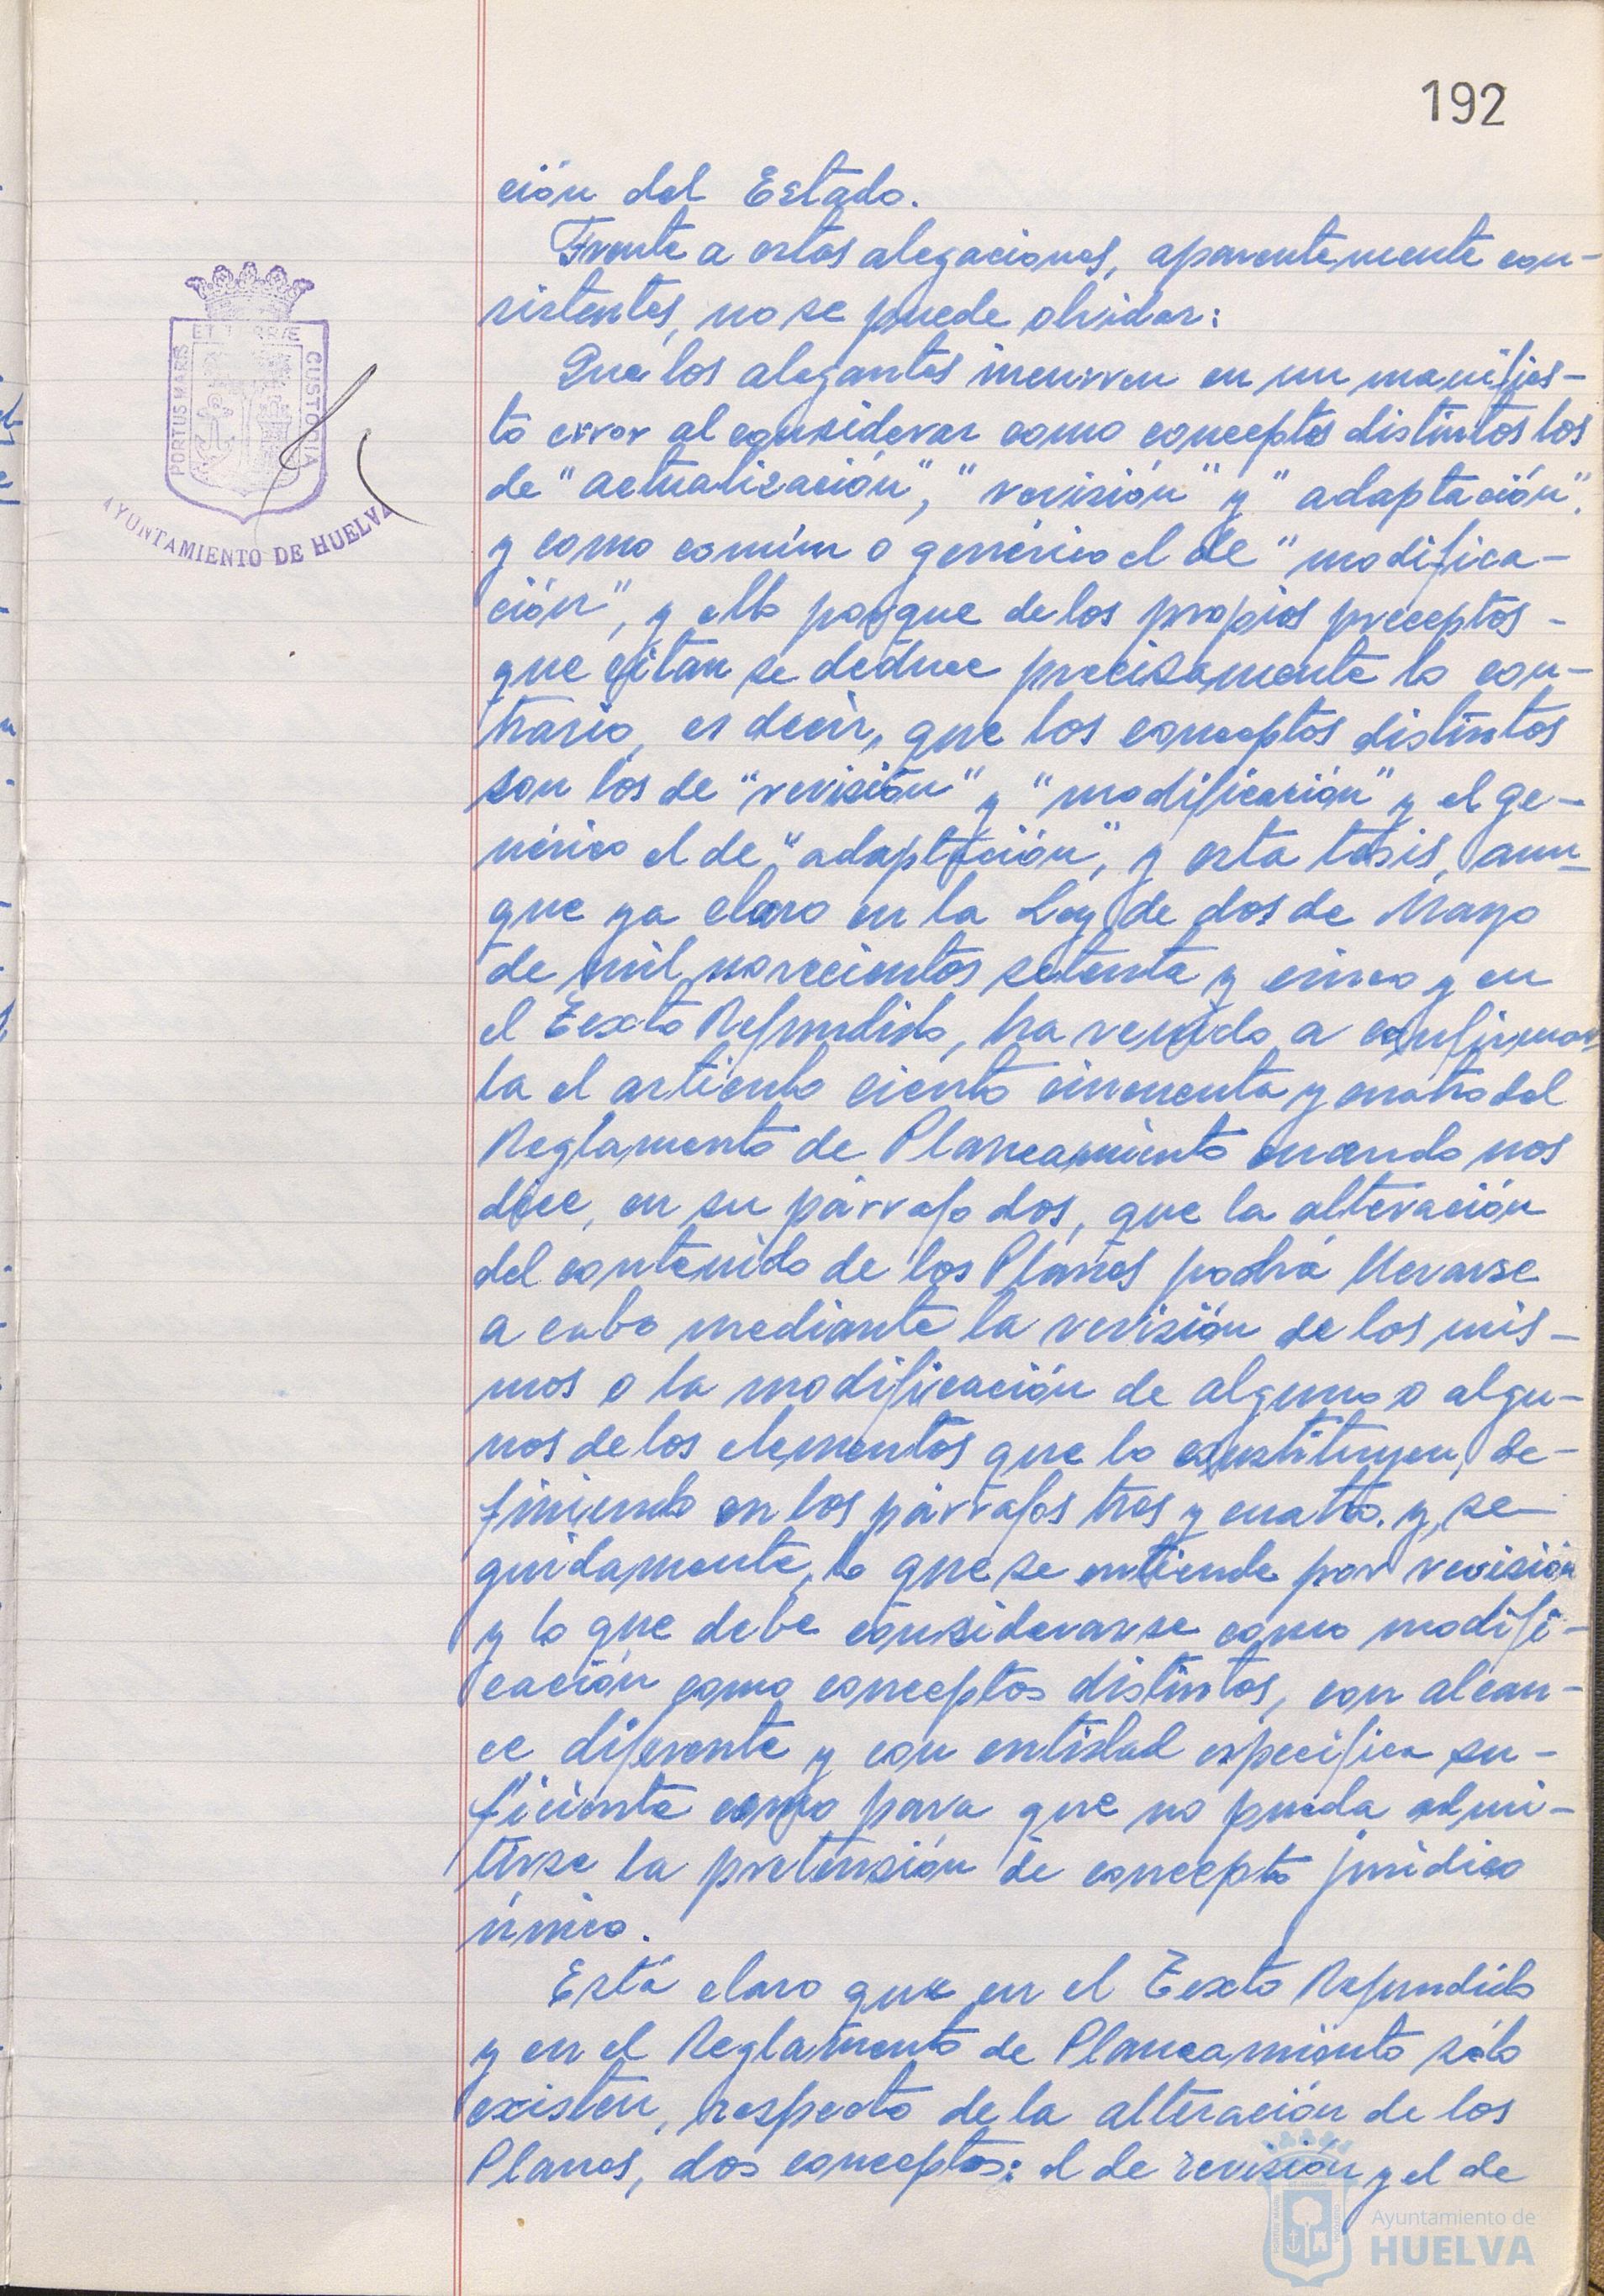 192
ción del Estado.
Frente a estas alegaciones, aparentemente con-
sistentes, no se puede olvidar:
Que los alegantes incurren en un manifies-
to error al considerar como conceptos distintos los
de "actualización", "revisión" y "adaptación",
y como común o genérico el de "modifica-
ción", y ello porque de los propios preceptos -
que citan se deduce precisamente lo con-
trario, es decir, que los conceptos distintos
son los de "revisión" y "modificación" y el ge-
nérico el de "adaptación", y esta tesis, aun-
que ya claro en la Ley de dos de Mayo
de mil novecientos setenta y cinco y en
el Texto Refundido, ha venido a confirmar
la el artículo ciento cincuenta y cuatro del
Reglamento de Planeamiento cuando nos
dice, en su párrafo dos, que la alteración
del contenido de los Planes podrá llevarse
a cabo mediante la revisión de los mis-
mos o la modificación de alguno o algu-
nos de los elementos que lo constituyen, de-
finiendo en los párrafos tres y cuatro. y, se-
guidamente, lo que se entiende por revisión
y lo que debe considerarse como modifi-
cación como conceptos distintos, con alcan-
ce diferente y con entidad específica su-
ficiente como para que no pueda admi-
tirse la pretensión de concepto jurídico
único.
Está claro que en el Texto Refundido
y en el Reglamento de Planeamiento sólo
existen, respecto de la alteración de los
Planes, dos conceptos: el de revisión y el de
PORTUS MARIS
ET TERRAE
CUSTODIA
AYUNTAMIENTO DE HUELVA
Ayuntamiento de
HUELVA